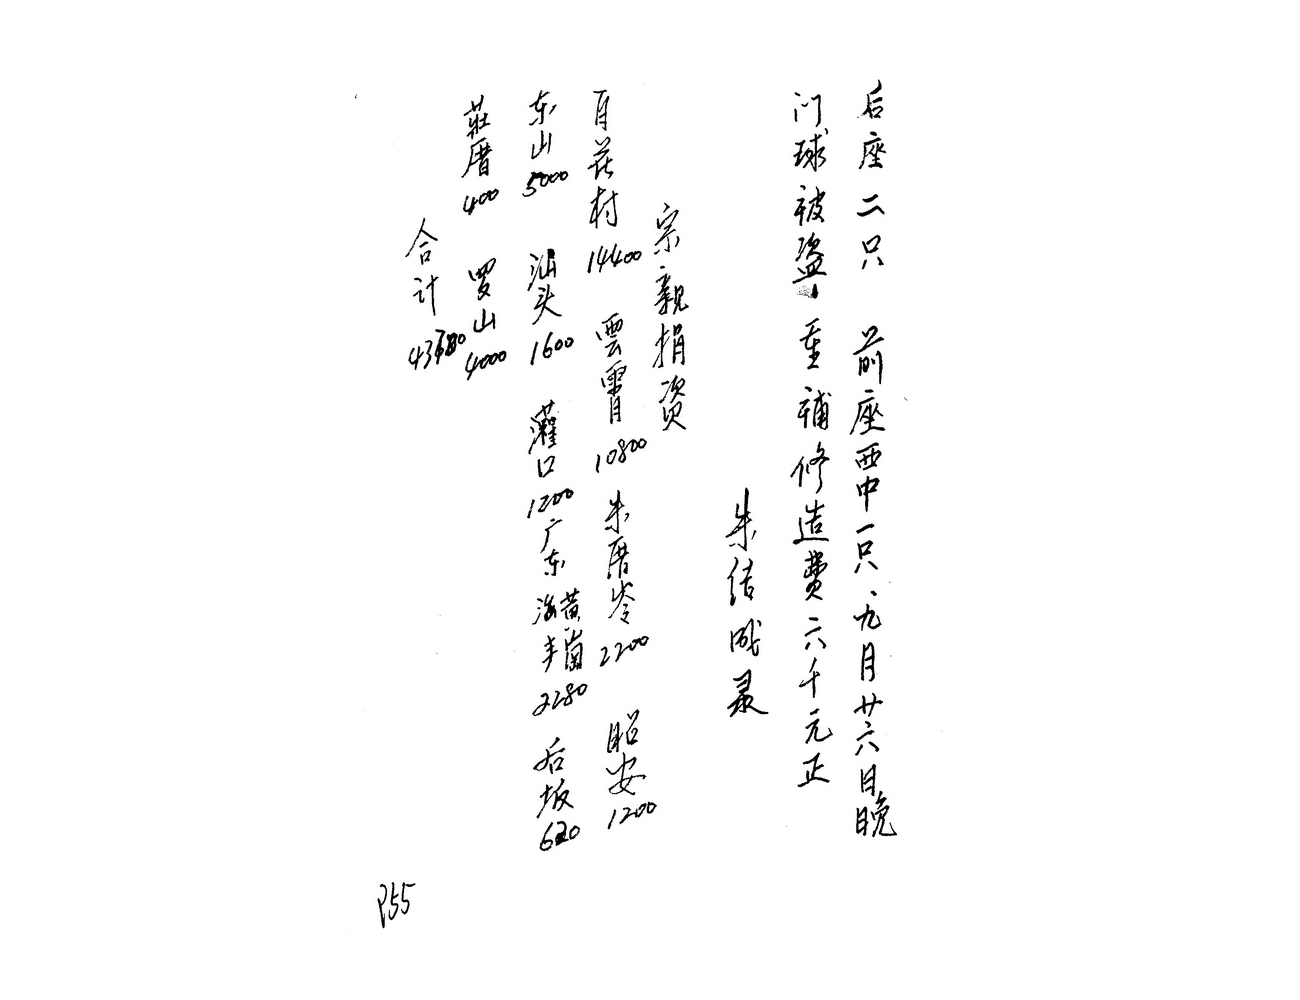 后座二只 前座西中一只、九月廿六日晚
门球被盗 重補修造费六千元正
朱结成录
宗親捐資
百花村14400 雲霄10800 朱厝岺2200 昭安1200
东山5000 汕头1600 灌口1200 广东海丰黄崗2280 后坂620
莊厝400 罗山4000
合计
P55